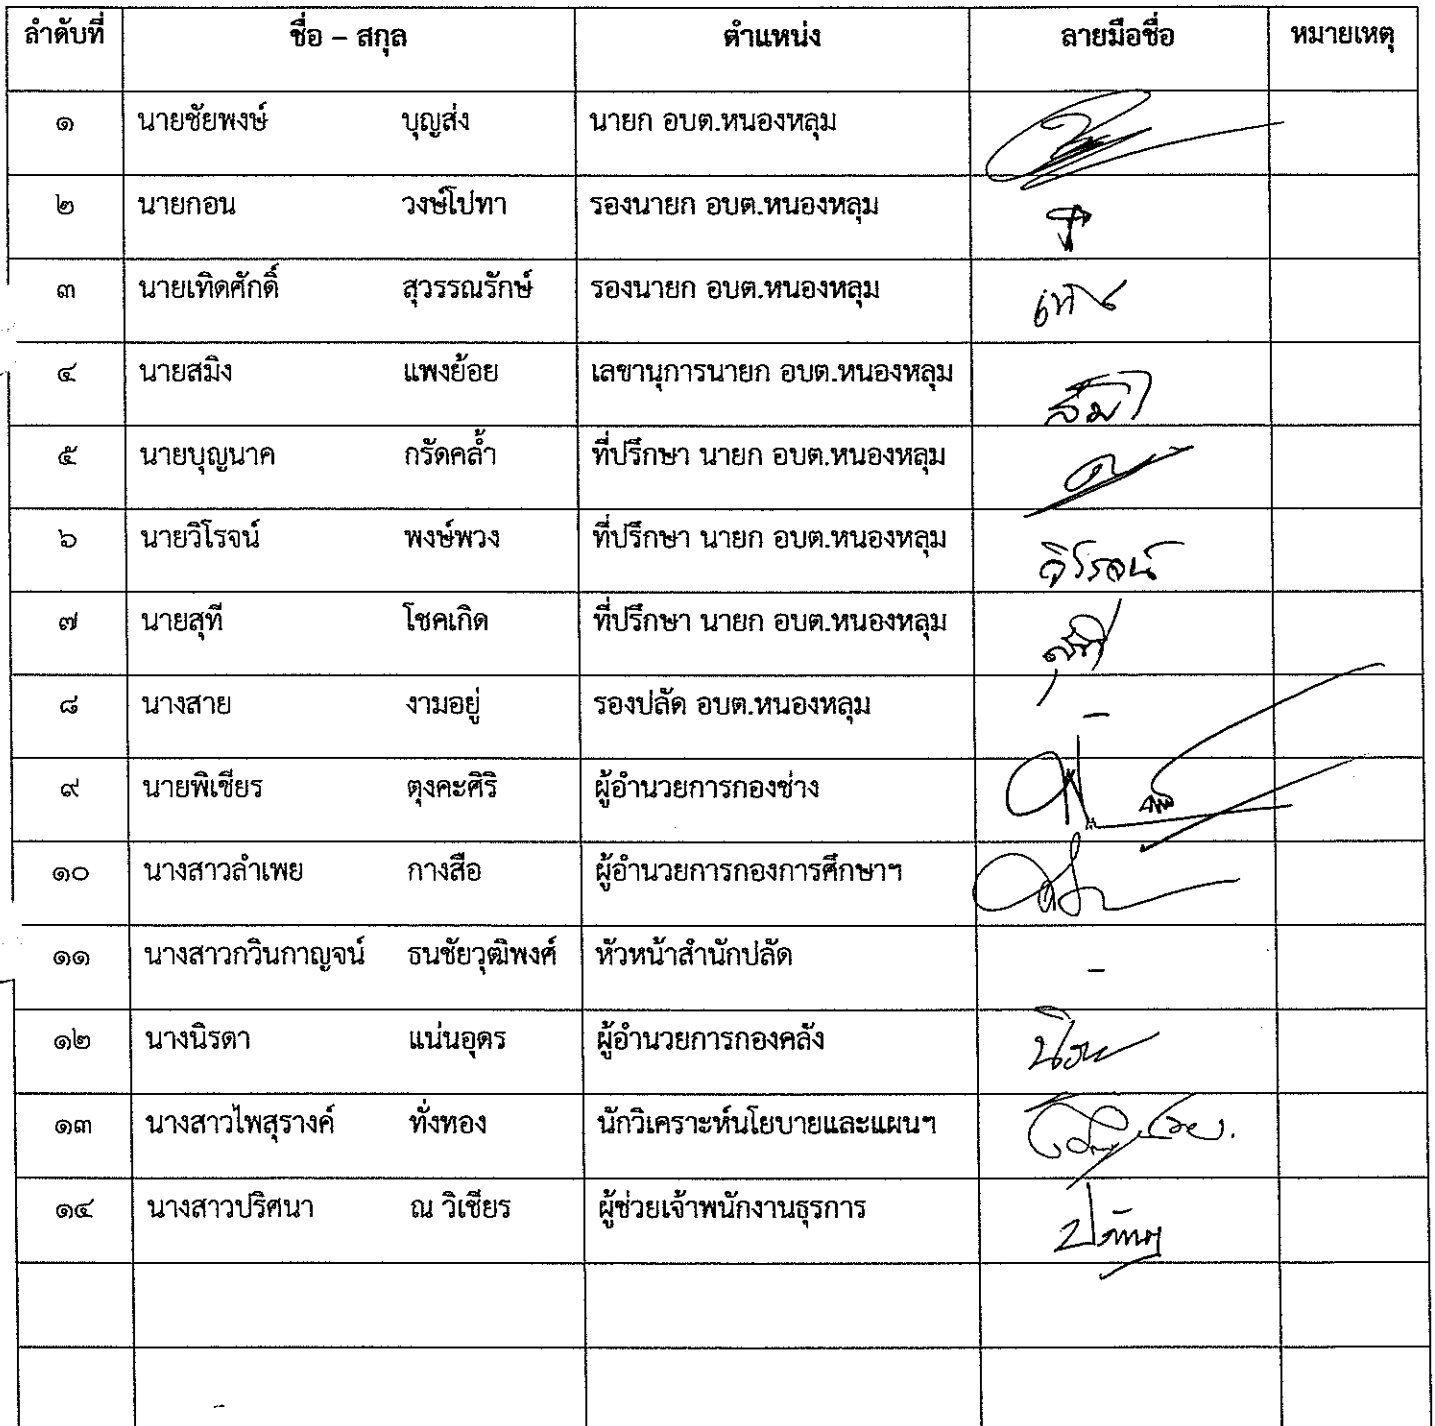 ลำดับที่ ชื่อ – สกุล ตำแหน่ง ลายมือชื่อ หมายเหตุ
๑ นายชัยพงษ์ บุญส่ง นายก อบต.หนองหลุม
๒ นายกอน วงษ์โปทา รองนายก อบต.หนองหลุม
๓ นายเทิดศักดิ์ สุวรรณรักษ์ รองนายก อบต.หนองหลุม
๔ นายสมิง แพงย้อย เลขานุการนายก อบต.หนองหลุม
๕ นายบุญนาค กรัดคล้ำ ที่ปรึกษา นายก อบต.หนองหลุม
๖ นายวิโรจน์ พงษ์พวง ที่ปรึกษา นายก อบต.หนองหลุม วิโรจน์
๗ นายสุที โชคเกิด ที่ปรึกษา นายก อบต.หนองหลุม สุที
๘ นางสาย งามอยู่ รองปลัด อบต.หนองหลุม –
๙ นายพิเชียร ตุงคะศิริ ผู้อำนวยการกองช่าง
๑๐ นางสาวลำเพย กางสือ ผู้อำนวยการกองการศึกษาฯ
๑๑ นางสาวกวินกาญจน์ ธนชัยวุฒิพงศ์ หัวหน้าสำนักปลัด –
๑๒ นางนิรดา แน่นอุดร ผู้อำนวยการกองคลัง
๑๓ นางสาวไพสุรางค์ ทั่งทอง นักวิเคราะห์นโยบายและแผนฯ
๑๔ นางสาวปริศนา ณ วิเชียร ผู้ช่วยเจ้าพนักงานธุรการ